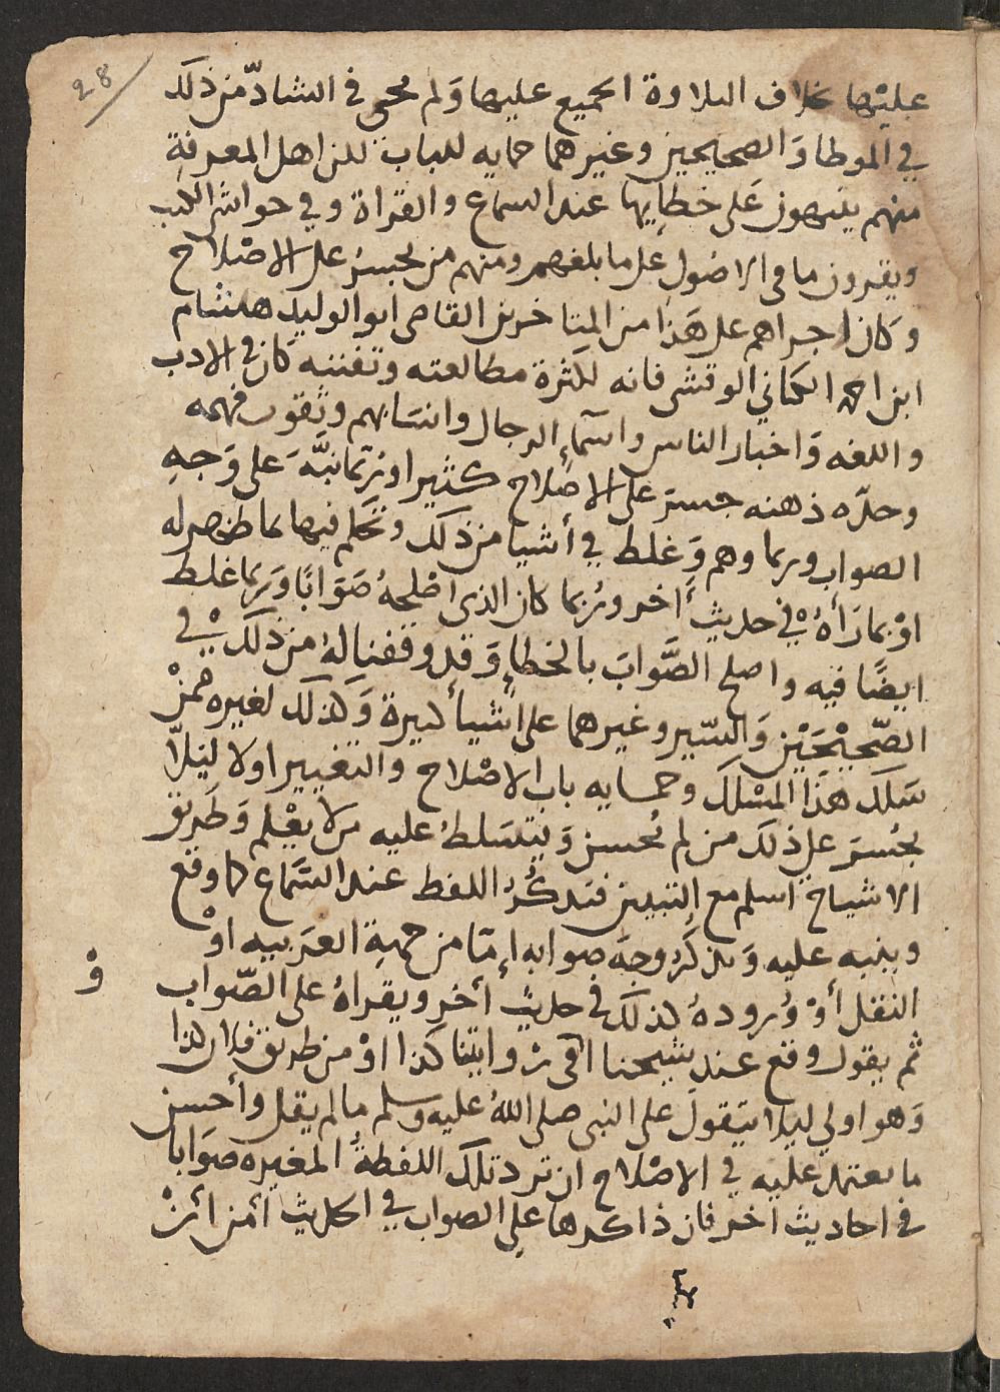 28
عليها بخلاف التلاوة المجمع عليها ولم يجئ في الشاذ من ذلك
في الموطا والصحيحين وغيرهما حماية للباب لكن اهل المعرفة
منهم ينبهون على خطايها عند السماع والقراة وفي حواشي الكتب
ويقرون ما في الاصول على ما بلغهم ومنهم من يجسر على الاصلاح
وكان اجراهم على هذا من المتاخرين القاضي ابو الوليد هشام
ابن احمد الكناني الوقشي فانه لكثرة مطالعته وتفننه كان في الادب
واللغه واخبار الناس واسماء الرجال وانسابهم وثقوب فهمه
وحدّه ذهنه جسر على الاصلاح كثيرا وربما نبَّه على وَجهِ
الصواب وربما وهم وَغلط في أشيا من ذلك وتحكم فيها بما ظهر له
اوْ بما رَأهُ في حديث أخر ورُبما كان الذي اصْلحهُ صَوَابًا وَربما غلط
ايضًا فيه واصلح الصَّوابَ بالخطاءِ وَقد وقفنا لهُ من ذلك في
الصّحيْحَيْن وَالسّير وغيرهما على أشيأ كبيرة وَكذلك لغيره ممنْ
سَلكَ هذا المسْلك وحمايه باب الاصْلاح والتغيير اولا ليَلّا
يجْسرَ على ذلك من لم يُحسن وَيتسَلط عليه من لا يعْلم وَطريق
الاشياخ اسلم مع التبيين فتذكُرُ اللفظ عند السَّماع كما وقع
وينبه عليه وَيذكرُ وجهَ صوابه إمّا من جهةِ العَربيه اوْ
النقل أوْ وُرودهُ كذلكَ في حديث أخر ويقراهُ على الصّواب
وْ
ثم يقول وقع عند شيخنا او في رْوايتنا كذا اوْ من طريق فلان كذا
وَهو اولي ليلا يتقولَ على النبي صلى اللهُ عليه وسلم ما لم يقل وأحسن
ما يعتمد عليه في الاصْلاح ان ترد تلك اللفظةُ المغيره صَوَابا
في احاديث أخر فان ذاكرها على الصواب في الحديث أمن انْ